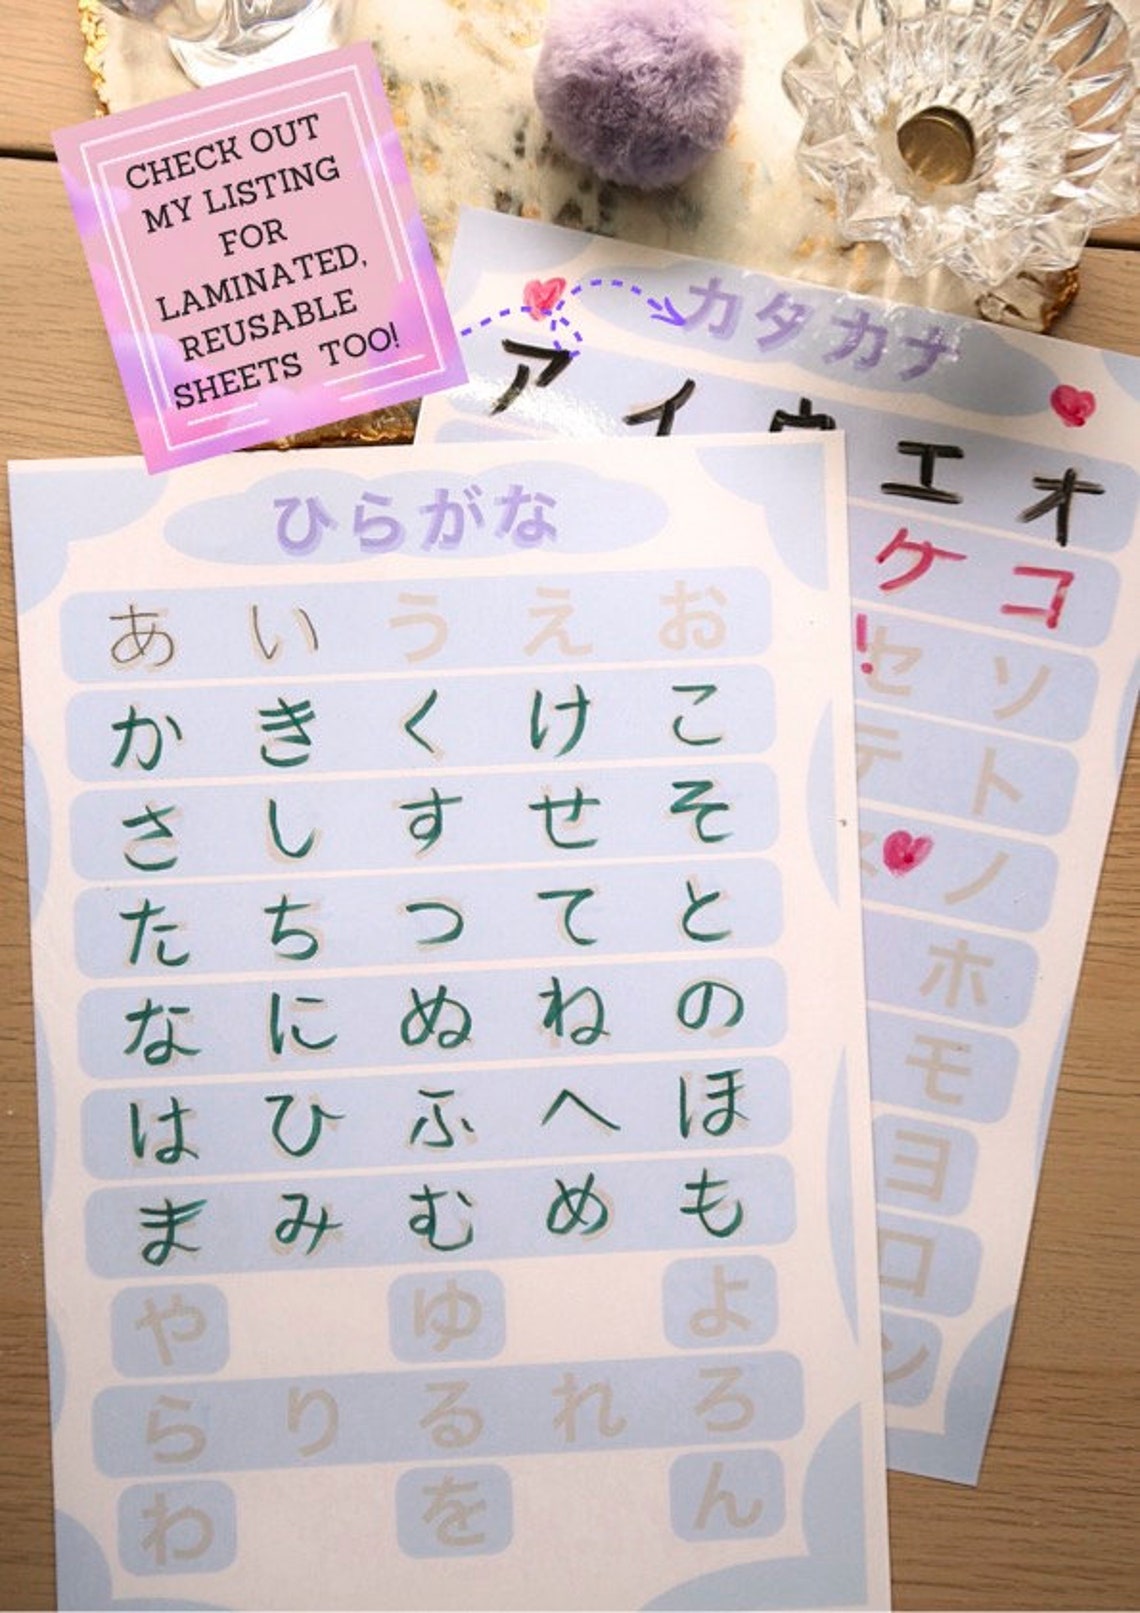 CHECK OUT
MY LISTING
FOR
LAMINATED,
REUSABLE
SHEETS TOO!
カタカナ
ア イ ウ エ オ
ケ コ
! セ ソ
テ ト
ノ
ホ
モ
ヨ
ロ
ン
ひらがな
あ い う え お
か き く け こ
さ し す せ そ
た ち つ て と
な に ぬ ね の
は ひ ふ へ ほ
ま み む め も
や ゆ よ
ら り る れ ろ
わ を ん